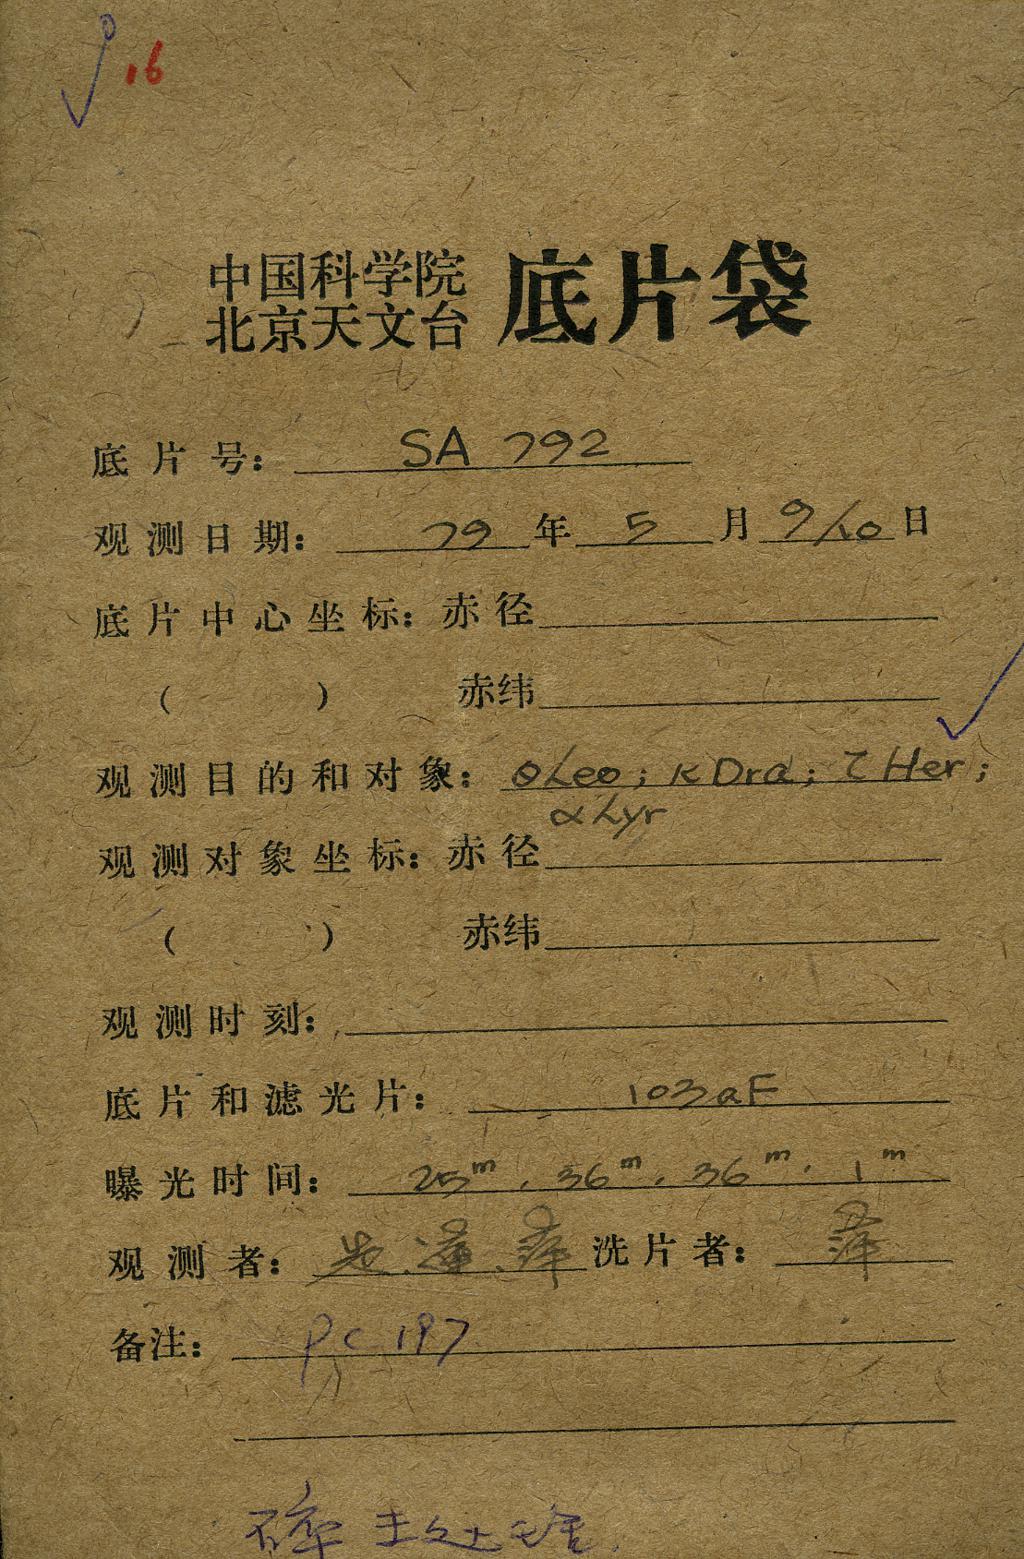 16
中国科学院
北京天文台 底片袋
底片号: SA 792
观测日期: 79 年 5 月 9/10 日
底片中心坐标: 赤径
( ) 赤纬
观测目的和对象: θ Leo; κ Dra; τ Her;
α Lyr
观测对象坐标: 赤径
( ) 赤纬
观测时刻:
底片和滤光片: 103aF
曝光时间: 25m, 36m, 36m, 1m
观测者: 洗片者:
备注: PC 197
碎